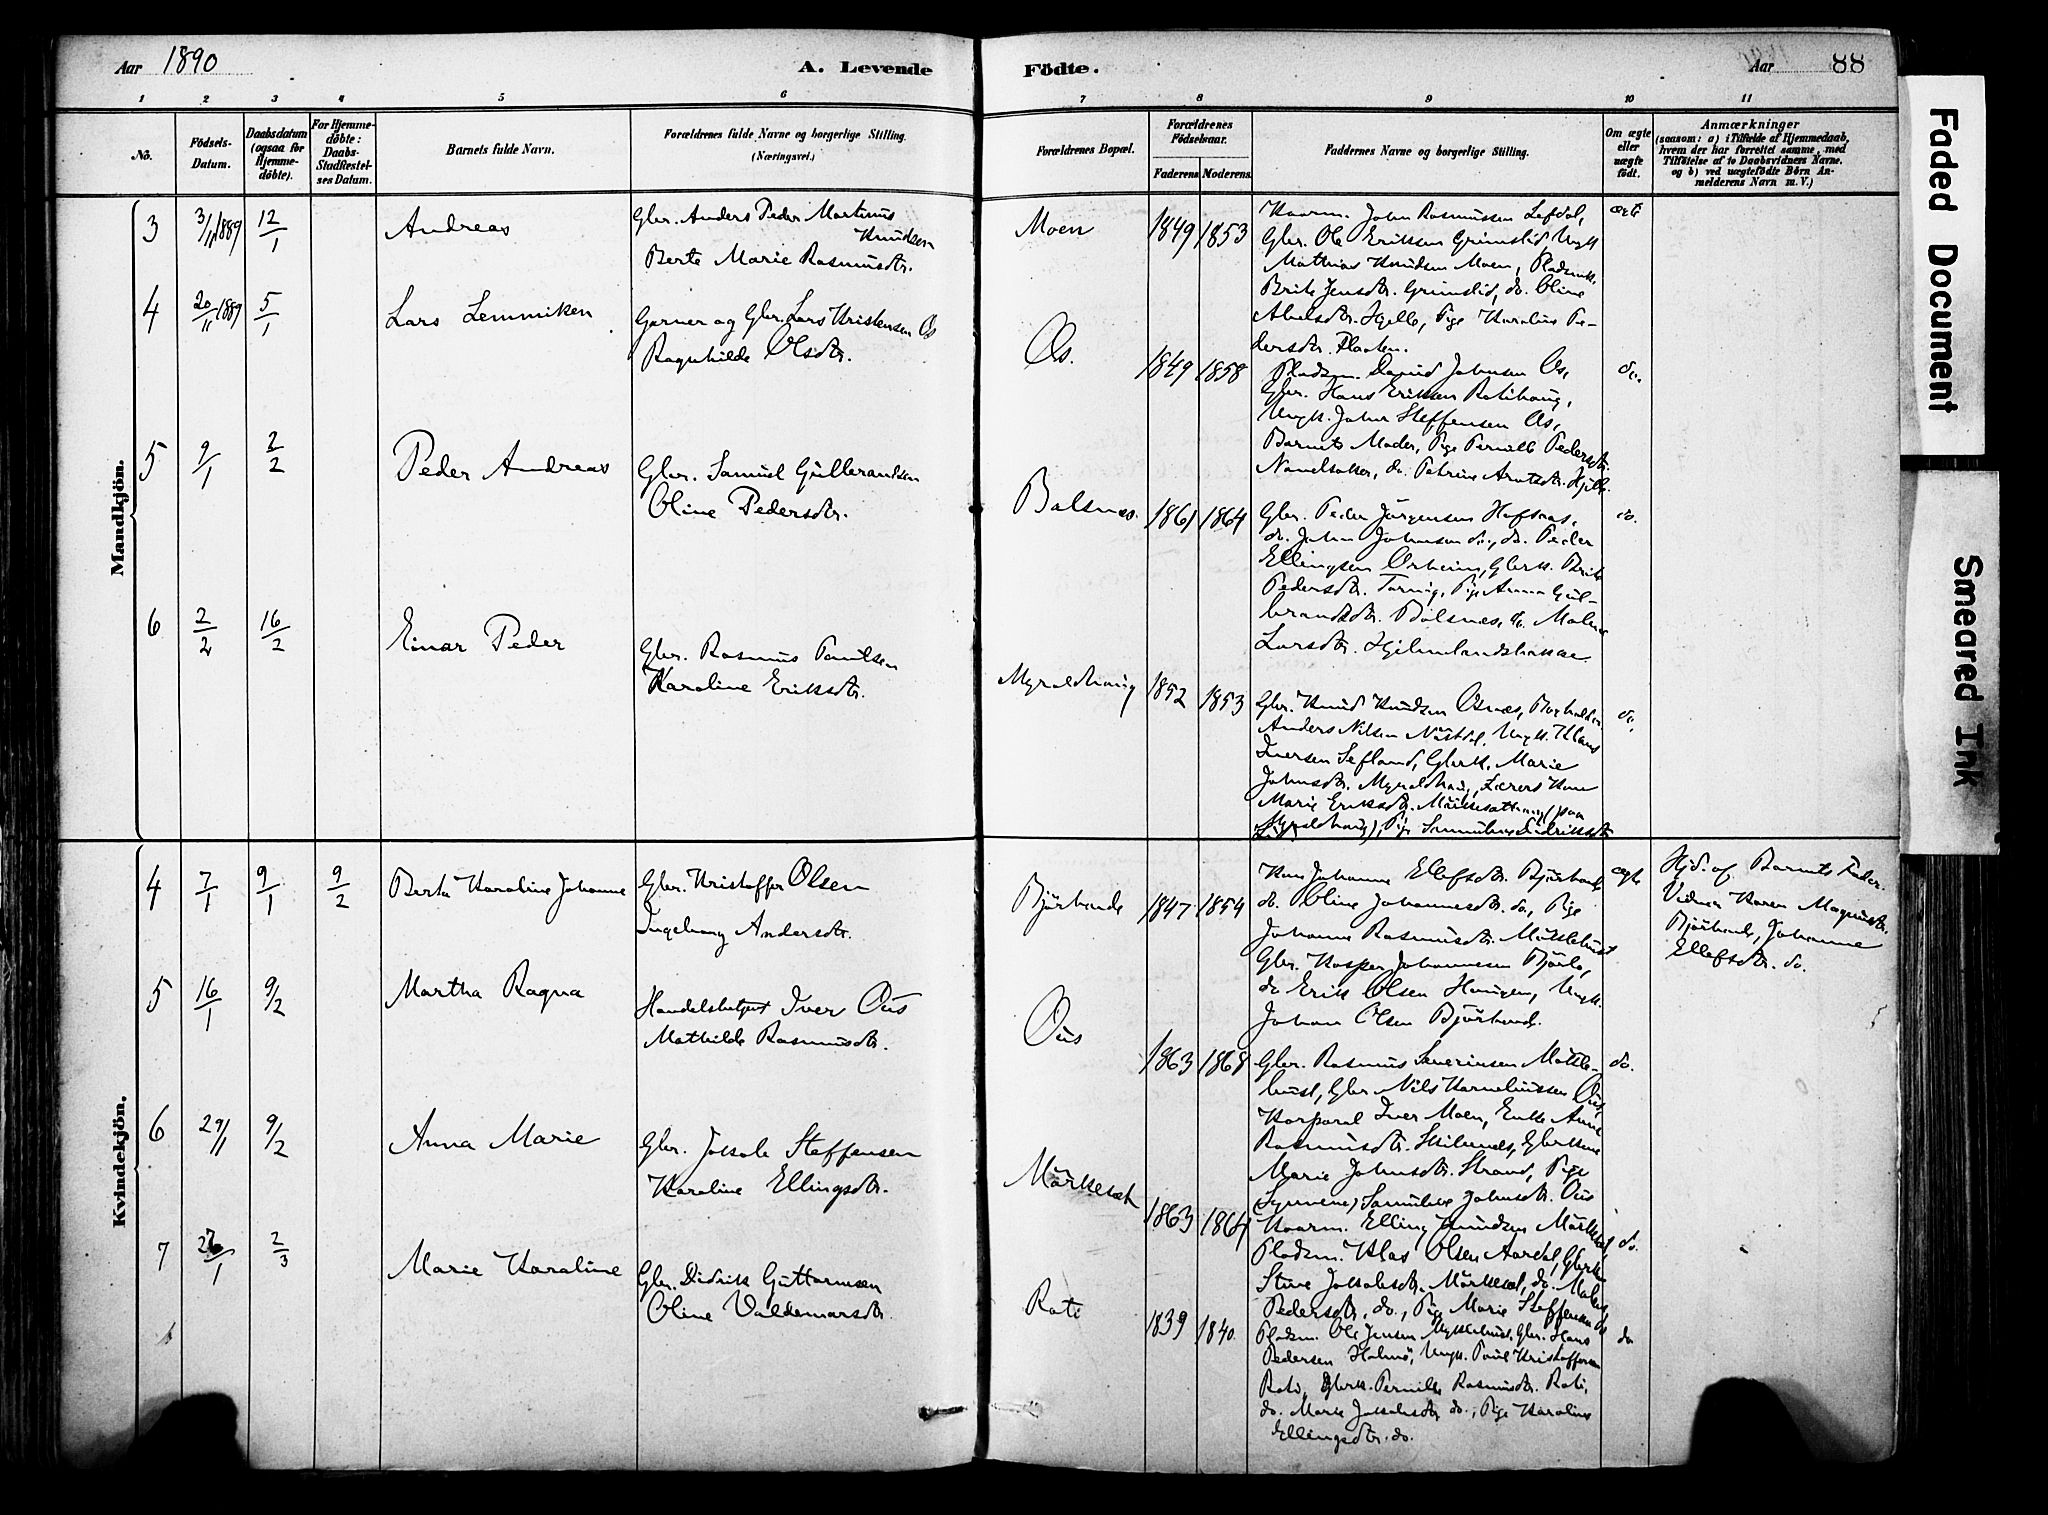 Aar 1890
A. Levende
Födte.
Aar
88
1 2 3 4 5 6 7 8 9 10 11
No.
Födsels-
Datum.
Daabsdatum
(ogsaa for
Hjemme-
döbte).
For Hjemme-
döbte:
Daabs-
Stadfæstel-
ses Datum.
Barnets fulde Navn.
Forældrenes fulde Navne og borgerlige Stilling.
(Næringsvei.)
Forældrenes Bopæl.
Forældrenes
Födselsaar.
Faderens
Moderens
Faddernes Navne og borgerlige Stilling.
Om ægte
eller
uægte
födt.
Anmærkninger
(saasom: a) i Tilfælde af Hjemmedaab,
hvem der har forrettet samme, med
Tilföielse af to Daabsvidners Navne.
og b) ved uægtefödte Börn An-
melderens Navn m. V.)
Mandkjön.
3
3/11 1889
12/1
Andreas
Gbr. Anders Peder Martinus
Knudsen
Berte Marie Rasmusdtr.
Moen
1849 1853
Kaarm. John Rasmussen Lefdal,
Gbr. Ole Eriksen Grimslid, Ungk.
Mathias Knudsen Moen,
Brite Jensdtr. Grimslid, do. Oline
Abelsdtr. Hjelle, Pige Karoline Pe-
dersdtr. Flaaten.
ægte
4
20/11 1889
5/1
Lars Lemmiken
Garver og Gbr. Lars Kristensen Os
Ragnhilde Olsdtr.
Os.
1849 1858
Pladsm. David Johnsen Os,
Gbr. Hans Eriksen Rotihaug,
Ungk. John Steffensen Os,
Barnets Moder, Pige Pernille Pedersdtr.
do. Petrine Arntsdtr. Hjelle.
do.
5
9/1
2/2
Peder Andreas
Gbr. Samuel Gulbrandsen
Oline Pedersdtr.
Balsnes.
1861 1864
Gbr. Peder Jörgensen
do. John Johnsen do., do. Peder
Ellingsen Örheim, Gbrk. Brite
Pedersdtr. Tarning, Pige Anna Gul-
brandsdtr. Balsnes, do. Malene
Larsdtr. Hjelmelandsbakke
do.
6
2/2
16/2
Einar Peder
Gbr. Rasmus Paulsen
Karoline Eriksdtr.
Myroldhaug
1852 1853
Gbr. Knud Knudsen Osnes,
Anders Nilsen Nöstdal, Ungk. Klaus
Iversen Sefland, Gbrk. Marie
Johnsdtr. Myroldhaug, Lærers Kone
Marie Eriksdtr. (paa
Myroldhaug), Pige Didriksdtr
do.
Kvindekjön.
4
7/1
9/1
9/2
Berta Karoline Johanne
Gbr. Kristoffer Olsen
Ingeborg Andersdtr.
Björhovde
1847 1854
Kone Johanne Ellefsdtr. Björhovde
do. Oline Johannesdtr. do., Pige
Johanne Rasmusdtr. Myklebust
Gbr. Kasper Johannesen Bjørlo,
do Erik Olsen Haugen, Ungk.
Johan Olsen Björhovde.
ægte
Hjd. af Barnets Fader.
Vidner Karen Magnusdtr.
Björhovde, Johanne
Ellefsdtr. do.
5
16/1
9/2
Martha Ragna
Handelsbetjent Iver Ous
Mathilde Rasmusdtr.
Ous
1863 1868
Gbr. Rasmus Severinsen Mykle-
bust, Gbr Nils Korneliussen Ous,
Korporal Iver Moen, Enke Anne
Rasmusdtr. Gbrkone
Marie Johnsdtr. Strand, Pige
Synneve Samuline Johnsdtr. Ous
do.
6
29/1
9/2
Anna Marie
Gbr. Jakob Steffensen
Karoline Ellingsdtr.
Mörkesæt
1863 1864
Kaarm. Elling Knudsen Mörkesæt,
Pladsm. Klas Olsen Aardal, Gbrk.
Stine Jakobsdtr. Mörkesæt, do. Malene
Pedersdtr. do., Pige Marie Steffensdtr. do
do.
7
26/1
2/3
Marie Karoline
Gbr. Didrik Guttormsen
Oline Valdemarsdtr.
Roti
1839 1840.
Pladsm. Ole Jensen Myklebust, Gbr. Hans
Pedersen Holmö, Ungk. Paul Kristoffersen
Roti, Gbrk. Pernille Rasmusdtr. Roti,
do. Marte Jakobsdtr do., Pige Karoline
Ellingsdtr. do.
do
Faded Document
Smeared Ink